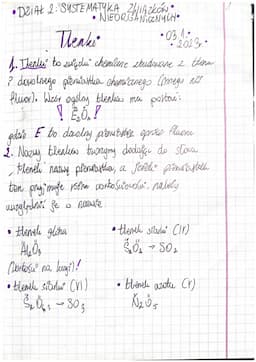 • DZIAŁ 2: SYSTEMATYKA ZWIĄZKÓW •
• NIEORGANICZNYCH •
Tlenki
1. Tlenki to związki chemiczne zbudowane z tlenu
? dowolnego pierwiastka chemicznego (innego niż
fluor). Wzór ogólny tlenku ma postać:
gdzie E to dowolny pierwiastek oprócz fluoru
2. Nazwy tlenków tworzymy dodając do słowa
"tlenek" nazwy pierwiastka, a jeżeli pierwiastek
ten przyjmuje różne wartościowości, należy
uwzględnić je w nazwie
• tlenek glinu
Al₂O₃
• tlenek siarki (IV)
S₂O₄ → SO₂
• tlenek siarki (VI)
S₂O₆ → SO₃
• tlenek azotu (V)
N₂O₅